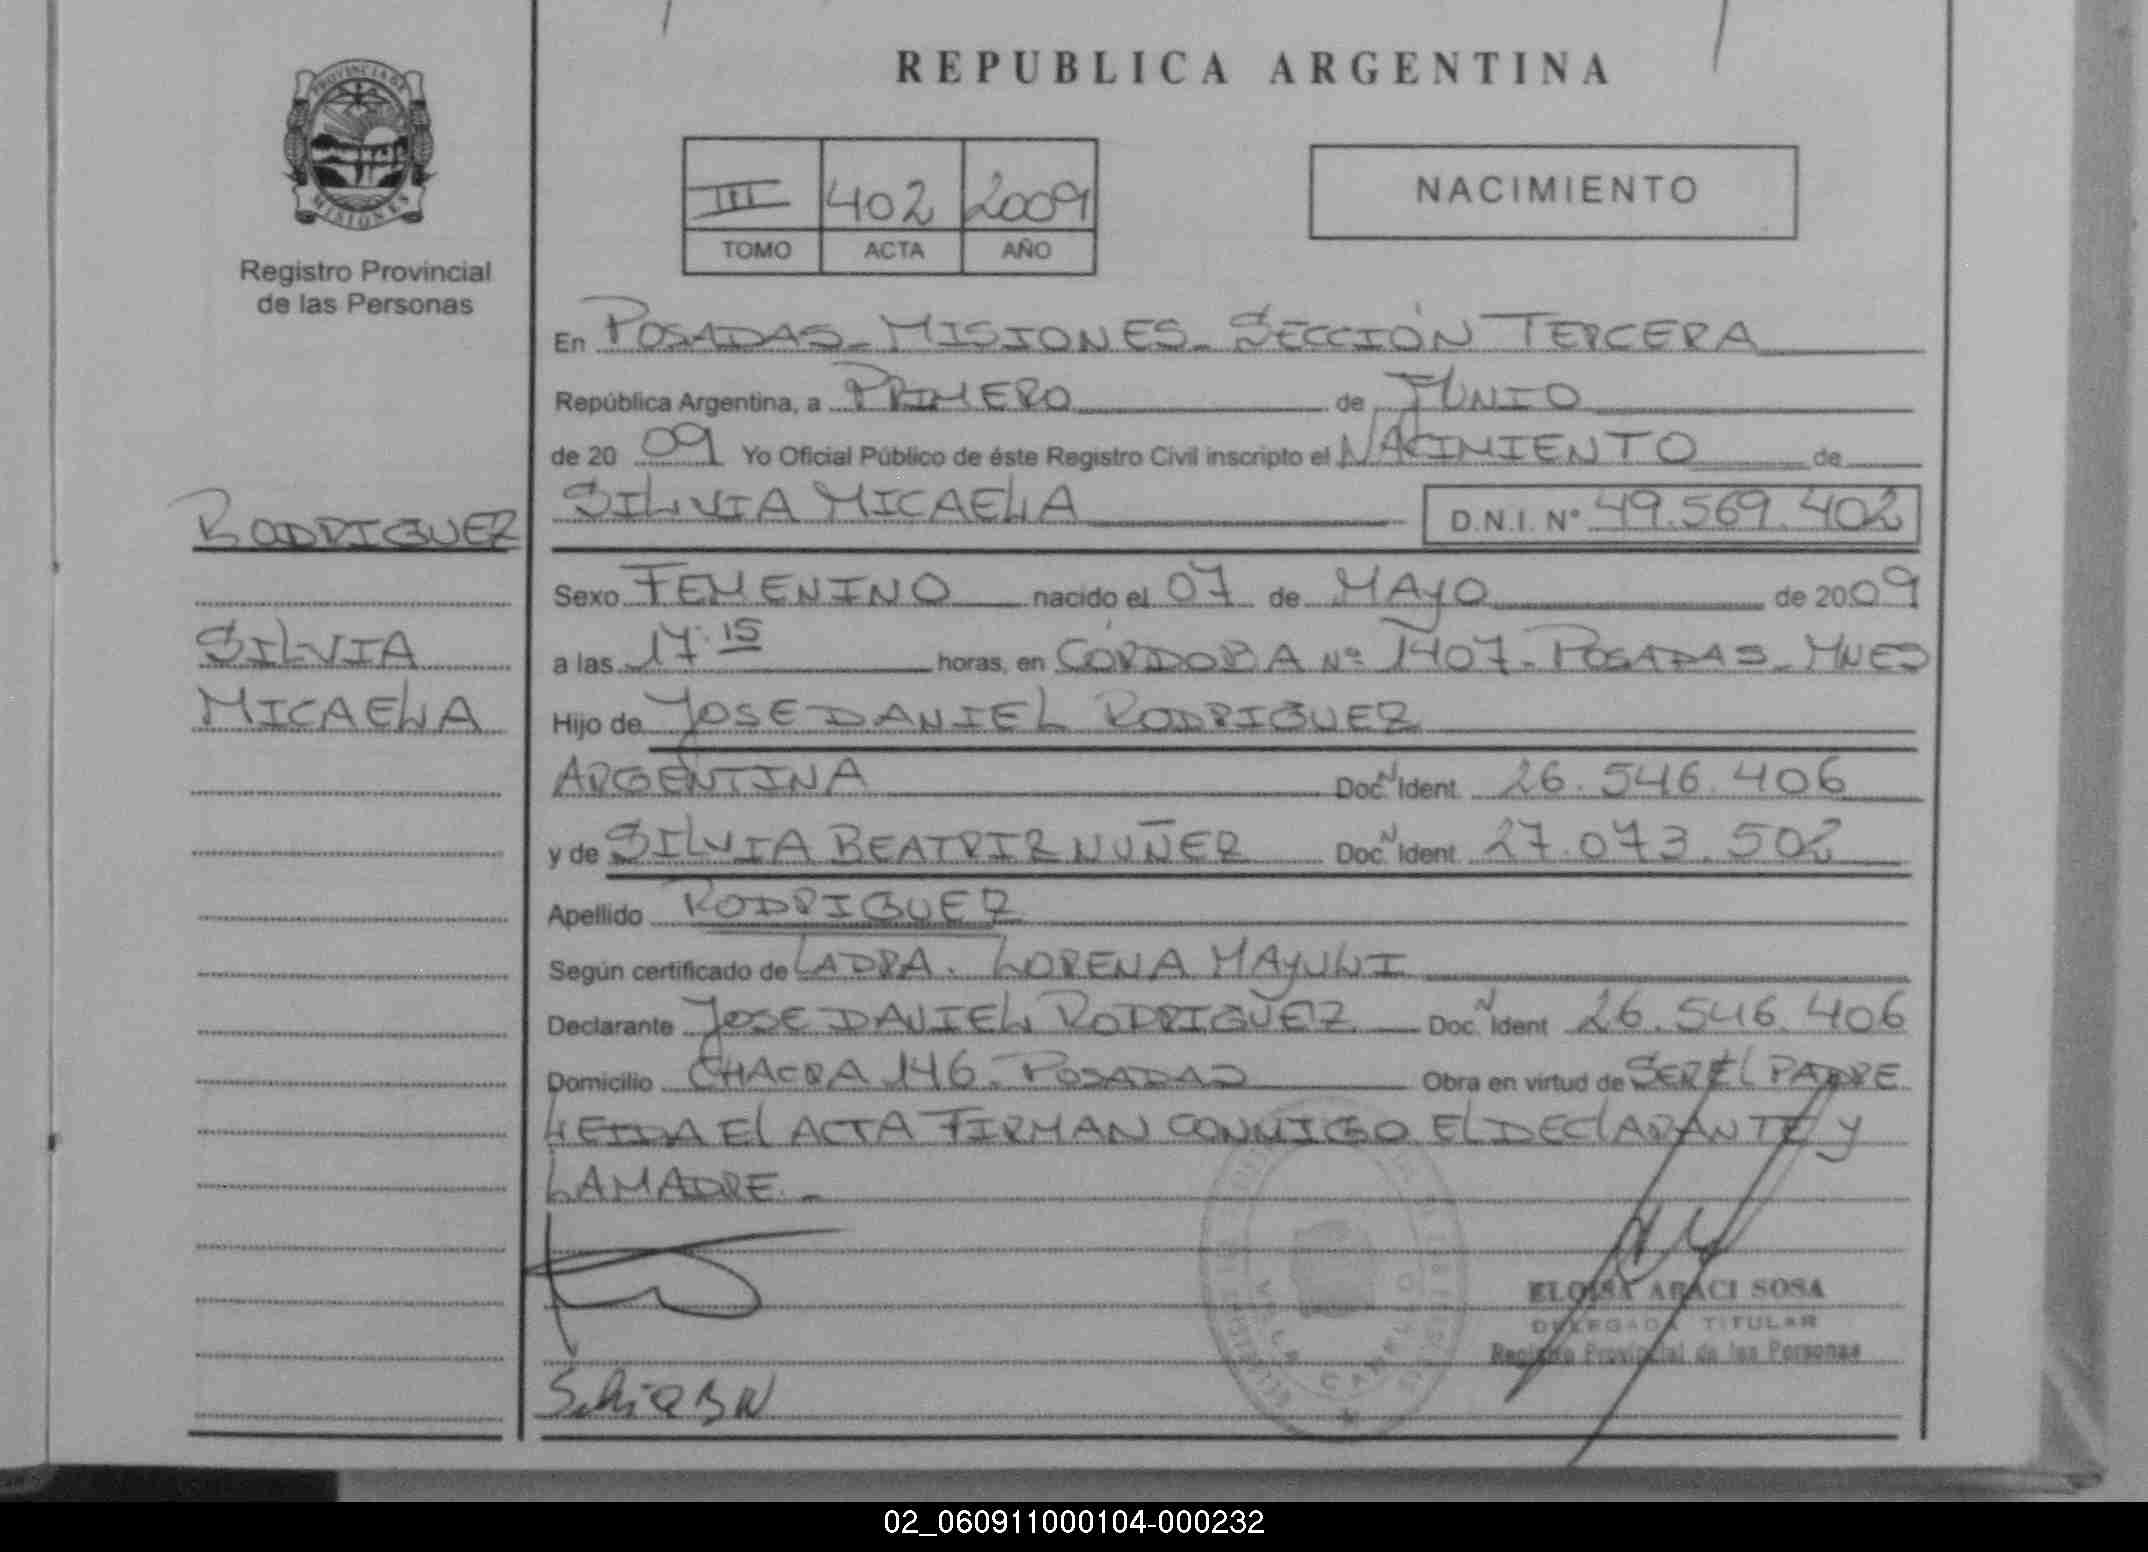 PROVINCIA DE
MISIONES
Registro Provincial
de las Personas
RODRIGUEZ
SILVIA
MICAELA
REPUBLICA ARGENTINA
III 402 2009
TOMO ACTA AÑO
NACIMIENTO
En POSADAS - MISIONES - SECCIÓN TERCERA
República Argentina, a PRIMERO de JUNIO
de 2009 Yo Oficial Público de éste Registro Civil inscripto el NACIMIENTO de
SILVIA MICAELA D.N.I. Nº 49.569.402
Sexo FEMENINO nacido el 07 de MAYO de 2009
a las 17:15 horas, en CÓRDOBA Nº 1407 - POSADAS - MNES
Hijo de JOSE DANIEL RODRIGUEZ
ARGENTINA Doc. N Ident. 26.546.406
y de SILVIA BEATRIZ NUÑEZ Doc. N Ident. 27.073.502
Apellido RODRIGUEZ
Según certificado de LA DRA. LORENA MAYULI
Declarante JOSE DANIEL RODRIGUEZ Doc. N Ident 26.546.406
Domicilio CHACRA 146 - POSADAS Obra en virtud de SER EL PADRE
LEIDA El ACTA FIRMAN CONMIGO EL DEClARANTE y
LA MADRE. -
Silvia B N
ELOISA ARACI SOSA
DELEGADA TITULAR
Registro Provincial de las Personas
02_060911000104-000232